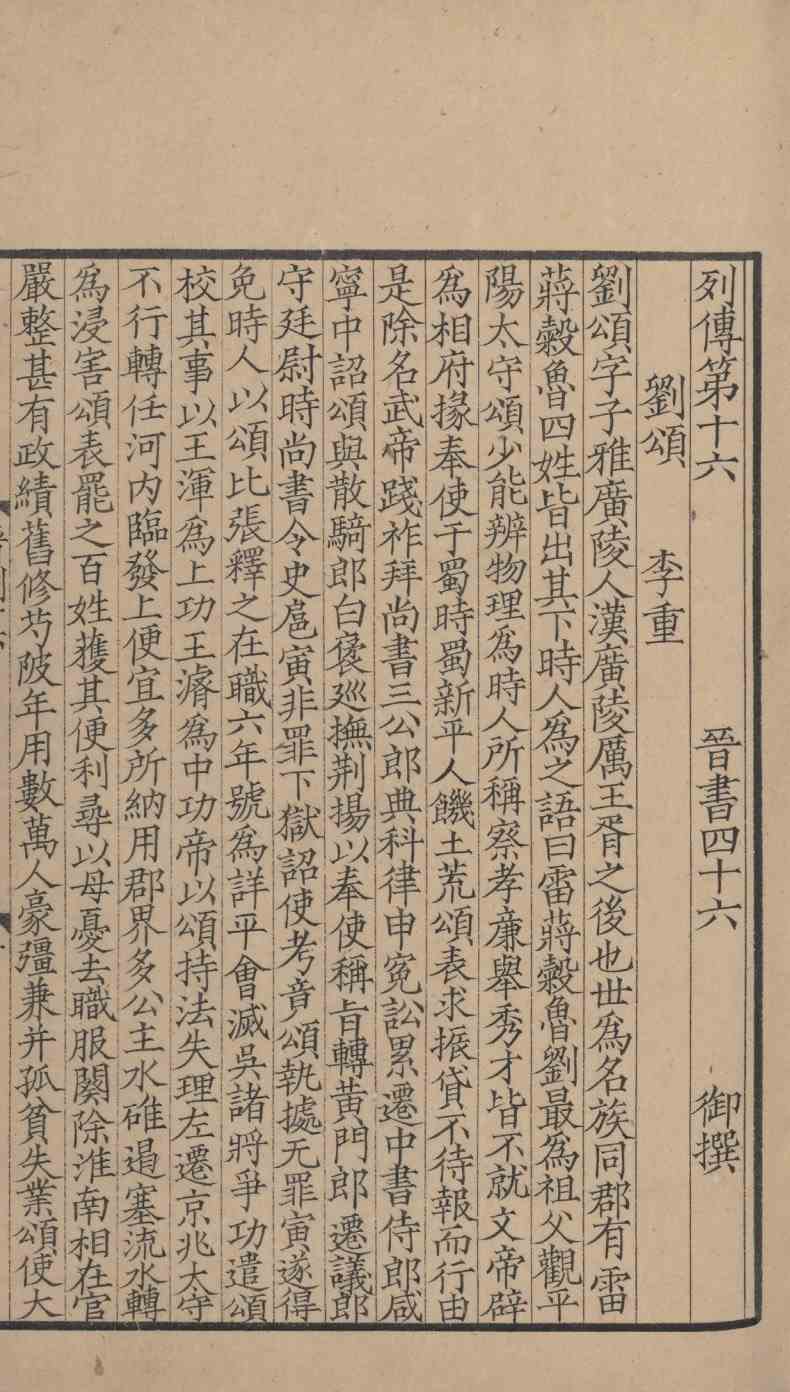 列傳第十六　晉書四十六　御撰
劉頌　李重
劉頌字子雅廣陵人漢廣陵厲王胥之後也世爲名族同郡有雷
蔣穀魯四姓皆出其下時人爲之語曰雷蔣穀魯劉最爲祖父觀平
陽太守頌少能辨物理爲時人所稱察孝廉舉秀才皆不就文帝辟
爲相府掾奉使于蜀時蜀新平人饑土荒頌表求振貸不待報而行由
是除名武帝踐祚拜尚書三公郎典科律申冤訟累遷中書侍郎咸
寧中詔頌與散騎郎白褒巡撫荆揚以奉使稱旨轉黃門郎遷議郎
守廷尉時尚書令史扈寅非罪下獄詔使考竟頌執據无罪寅遂得
免時人以頌比張釋之在職六年號爲詳平會滅吳諸將爭功遣頌
校其事以王渾爲上功王濬爲中功帝以頌持法失理左遷京兆太守
不行轉任河内臨發上便宜多所納用郡界多公主水碓遏塞流水轉
爲浸害頌表罷之百姓獲其便利尋以母憂去職服闋除淮南相在官
嚴整甚有政績舊修芍陂年用數萬人豪彊兼并孤貧失業頌使大